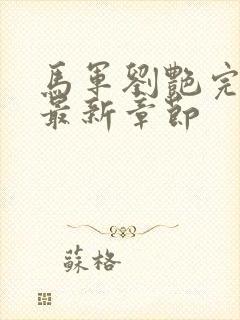 馬軍劉艷完
最新章節
蘇格